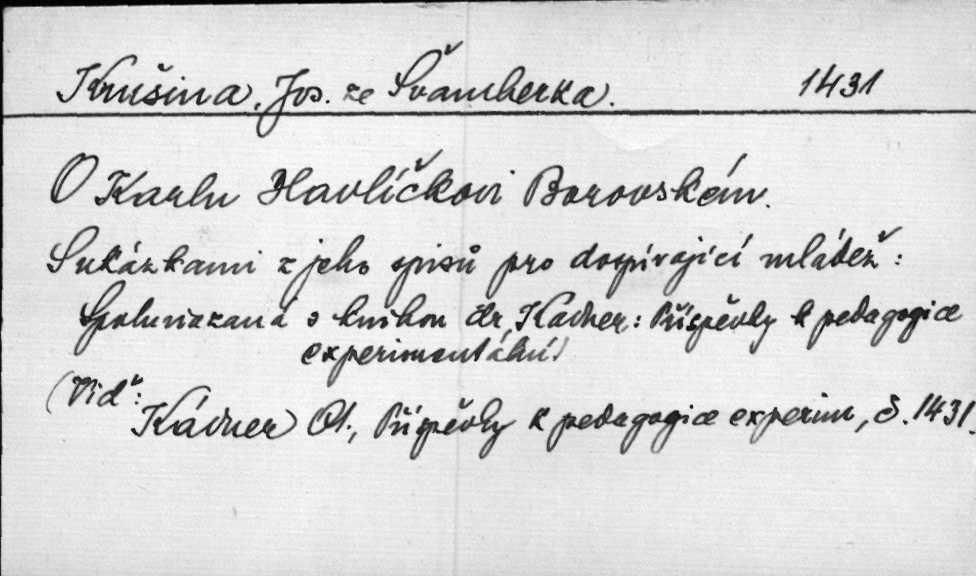 Krušina, Jos. ze Švamberka. 1431
O Karlu Havlíčkovi Borovském.
S ukázkami z jeho spisů pro dospívající mládež:
Spoluvázaná s knihou dr. Kádner: Příspěvky k pedagogice
experimentální)
(Viď:
Kádner Ot., Příspěvky k pedagogice experim, č. 1431.